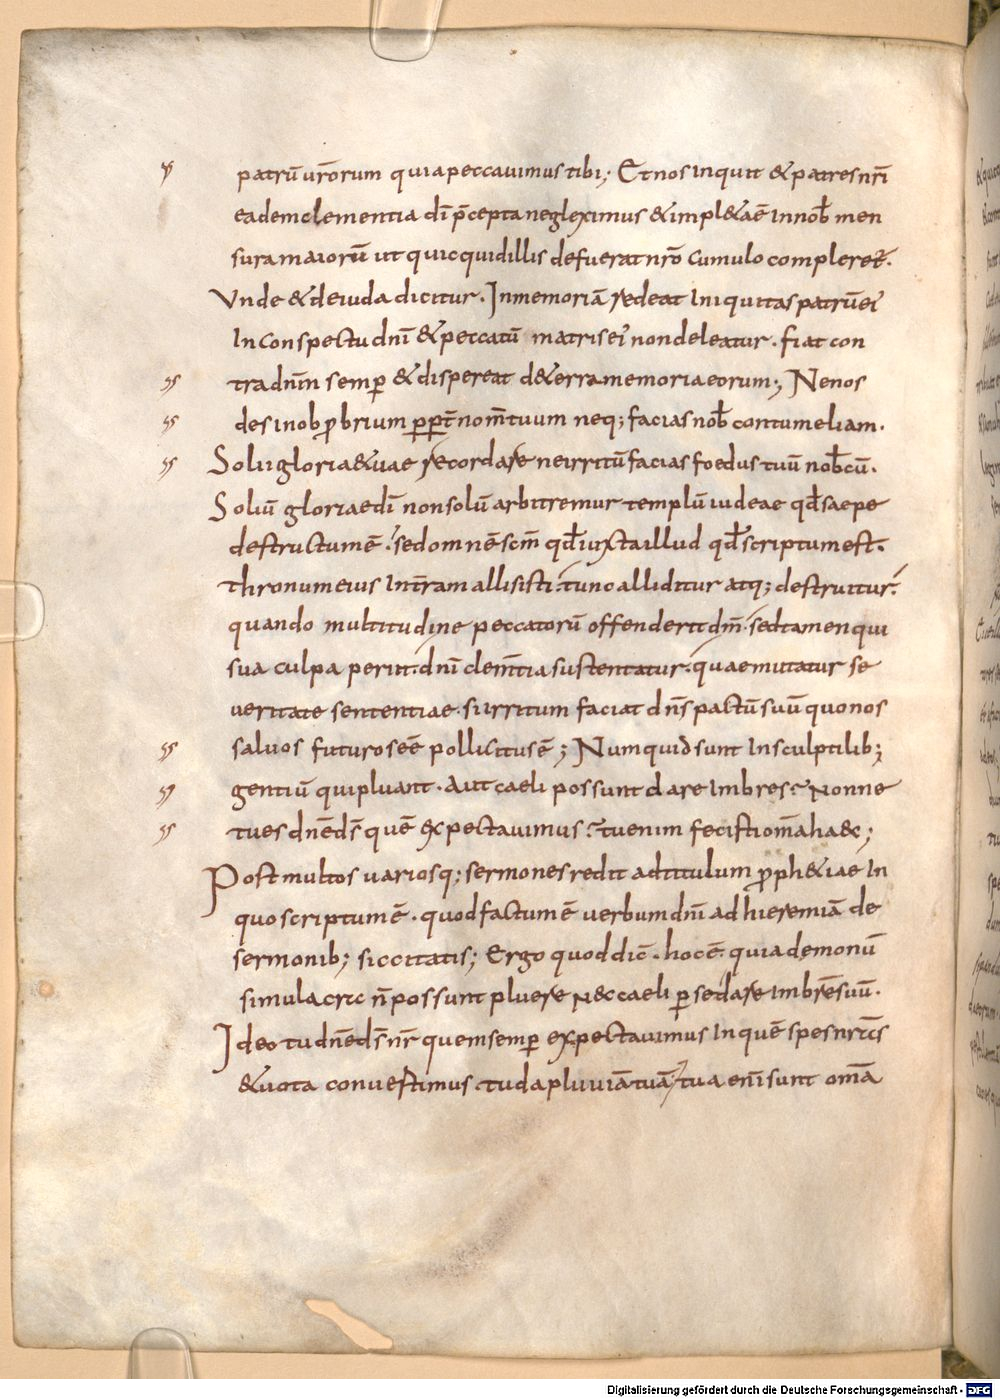 patrū urōrum quia peccauimus tibi; Et nos inquit & patres nr̄i
eadem clementia dī p̄cepta negleximus & impl&aē in nob̄ men
sura maiorū ut quicquid illis defuerat nr̄o cumulo compleret.
Vnde & de iuda dicitur. In memoriā redeat iniquitas patrū ei
in conspectu dnī & peccatū matris ei non deleatur. fiat con
tra dnm̄ semp & dispereat de terra memoria eorum; Ne nos
des in obprobrium ppt̄ nom̄ tuum neq; facias nob̄ contumeliam.
Solii gloriae tuae recordare ne irritū facias foedus tuū nob̄cū.
Soliū gloriae dī non solū arbitremur templū iudeae qd̄ saepe
destructum ē. sed omnē scm̄ qd̄ iuxta illud qd̄ scriptum est.
thronum eius in tr̄am allisisti. tunc alliditur atq; destruitur.
quando multitudine peccatorū offenderit dm̄. sed tamen qui
sua culpa perit. dnī clem̄tia sustentatur. quae mutatur se
ueritate sententiae. si irritum faciat dn̄s pactū suū quo nos
saluos futuros eē pollicitus ē; Numquid sunt in sculptilib;
gentiū qui pluant. Aut caeli possunt dare imbres? Nonne
tu es dn̄e ds̄ quē expectauimus? tu enim fecisti om̄a haec;
Post multos uariosq; sermones redit ad titulum proph&iae in
quo scriptum ē. quod factum ē uerbum dnī ad hieremiā de
sermonib; siccitatis; Ergo quod dic̄. hoc ē. quia demonū
simulacra n̄ possunt pluere nec caeli p se dare imbrē suū.
Ideo tu dn̄e ds̄ nr̄ quem semp expectauimus in quē spes nr̄as
& uota conuestimus tu da pluuiā tuā. tua enī sunt om̄a
Digitalisierung gefördert durch die Deutsche Forschungsgemeinschaft - DFG